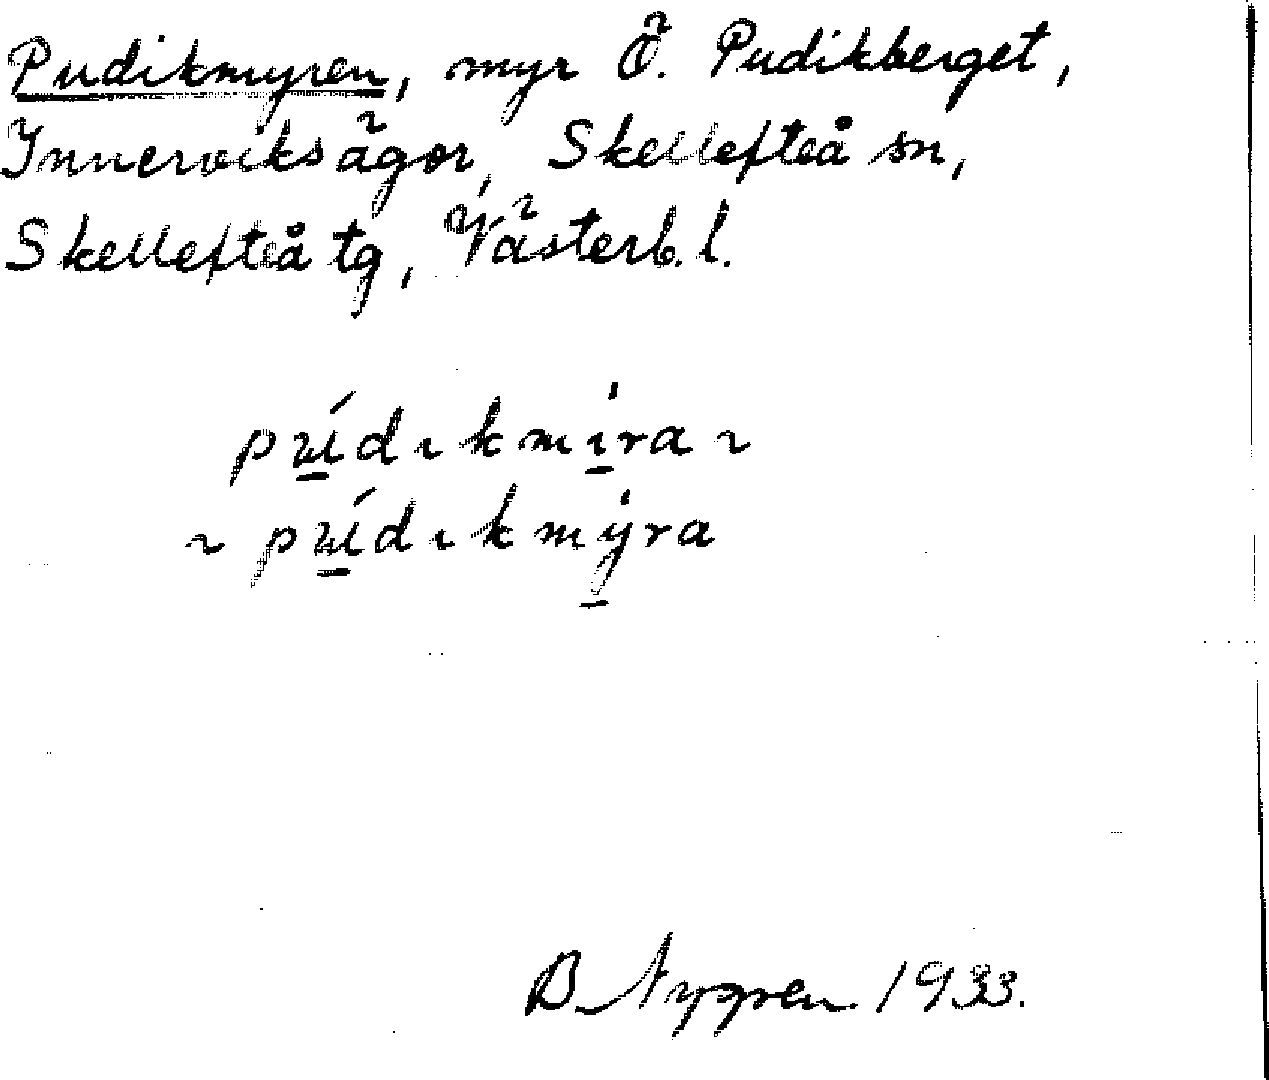 Pudikmyren, myr Ö. Pudikberget,
Innerviks ägor, Skellefteå sn,
Skellefteå tg, Västerb. l.
pu̲í̲dıkmi̲ra ~
~ pu̲í̲dıkmy̲ra
B. Nygren 1933.